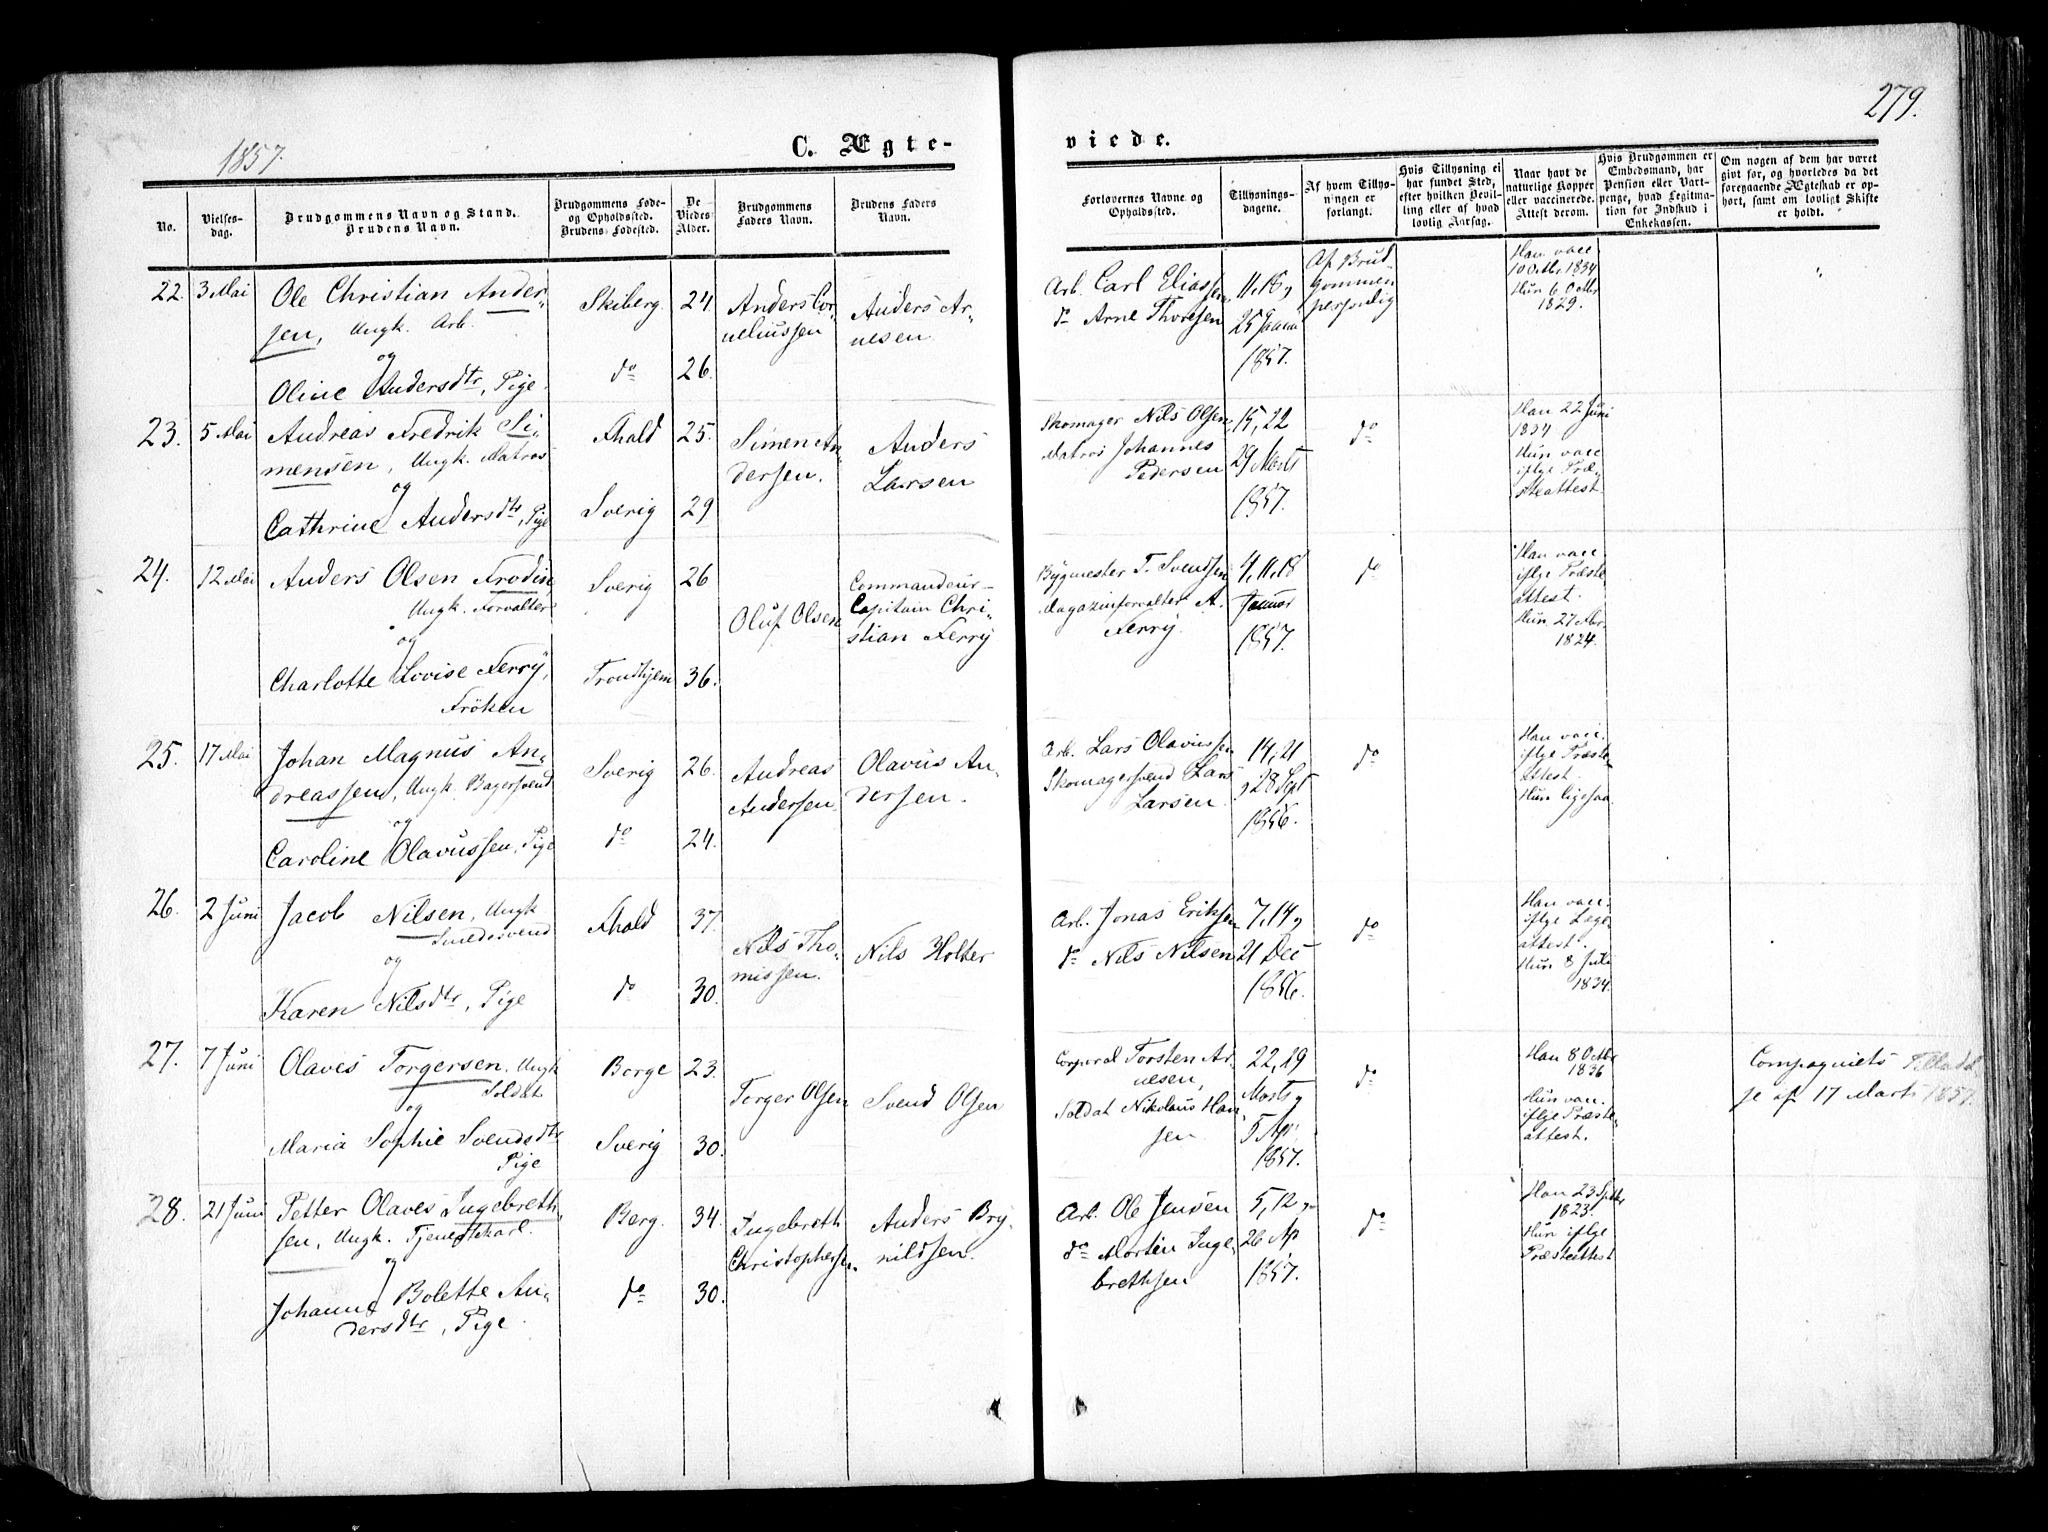 279.
1857.
C. Ægte-
viede.
No.
Vielses-
dag.
Brudgommens Navn og Stand.
Brudens Navn.
Brudgommens Føde-
og Opholdssted.
Brudens Fødested.
De
Viedes
Alder.
Brudgommens
Faders Navn.
Brudens Faders
Navn.
Forlovernes Navne og
Opholdssted.
Tillysnings-
dagene.
Af hvem Tillys-
ningen er
forlangt.
Hvis Tillysning ei
har fundet Sted,
efter hvilken Bevil-
ling eller af hvad
lovlig Aarsag.
Naar havt de
naturlige Kopper
eller vaccinerede.
Attest derom.
Hvis Brudgommen er
Embedsmand, har
Pension eller Vart-
penge, hvad Legitma-
tion for Indskud i
Enkekassen.
Om nogen af dem har været
gift før, og hvorledes da det
foregaaende Ægteskab er op-
hørt, samt om lovligt Skifte
er holdt.
22. 3 Mai
Ole Christian Ander-
sen, Ungk. Arb.
og
Oline Andersdtr, Pige.
Skiberg
do
24
26.
Anders Cor-
neliussen
Anders Ar-
nesen.
Arb. Carl Eliassen
do Arne Thoresen
11, 18, og
25 Januar
1857.
Af Brud-
gommen
personlig
Han vacc
10 Octbr 1834
Hun 6 Octbr
1829.
"
23. 5 Mai
Andreas Fredrik Si-
mensen, Ungk. Matros
og
Cathrine Andersdtr, Pige
Fhald
Sverig
25.
29
Simen An-
dersen.
Anders
Larsen
Skomager Nils Olsen
Matros Johannes
Pedersen
15, 22
29 Marts
1857.
do
Han 22 Juni
1834
Hun vacc
iflge Præ-
steattest.
24. 12 Mai
Anders Olsen Frodin,
Ungk. Forvalter
og
Charlotte Lovise Ferry,
Frøken
Sverig
Trondhjem
26
36.
Oluf Olsen
Commandeur-
Capitain Chri-
stian Ferry
Bygmester T. Svendsen
Magazinforvalter A.
Ferry.
4, 11, 18
Januar
1857.
do
Han vacc.
iflge Præste-
attest.
Hun 27 Apr.
1824.
25. 17 Mai
Johan Magnus An-
dreassen, Ungk. Bagersvend
og
Caroline Olavussen, Pige
Sverig
do
26.
24.
Andreas
Andersen
Olavus An-
dersen.
Arb. Lars Olavussen
Skomagersvend Lars
Larsen.
14, 21
og 28 Sept
1856.
do
Han vacc.
iflge Præste-
attest.
Hun ligesaa.
26. 2 Juni
Jacob Nilsen, Ungk
Smedesvend
og
Karen Nilsdtr, Pige
Fhald
do
37.
30.
Nils Tho-
missen.
Nils Holter
Arb. Jonas Eriksen
do Nils Nilsen
7, 14, og
21 Dec
1856.
do
Han vacc.
iflge Læge-
attest.
Hun 8 Juli
1834.
27. 7 Juni
Olaves Torgersen, Ungk
Soldat
og
Maria Sophie Svendsdtr
Pige
Borge
Sverig
23.
30.
Torger Olsen
Svend Olsen
Corporal Torsten Ar-
nesen,
Soldat Nikolaus Han-
sen
22, 29
Marts og
5 Apr.
1857.
do
Han 8 Octbr
1836
Hun vacc.
iflge Præste-
attest.
Compagniets Tilladel-
se af 17 Marts 1857.
28. 21 Juni
Petter Olaves Ingebreth-
sen, Ungk. Tjenestekarl.
og
Johanne Bolette An-
dersdtr, Pige.
Berg.
do
34.
30.
Ingebreth
Christophersen.
Anders Bry-
nildsen.
Arb. Ole Jensen
do Morten Inge-
brethsen
5, 12, og
26 Ap
1857.
do
Han 23 Septbr
1823.
Hun iflge
Præsteattest